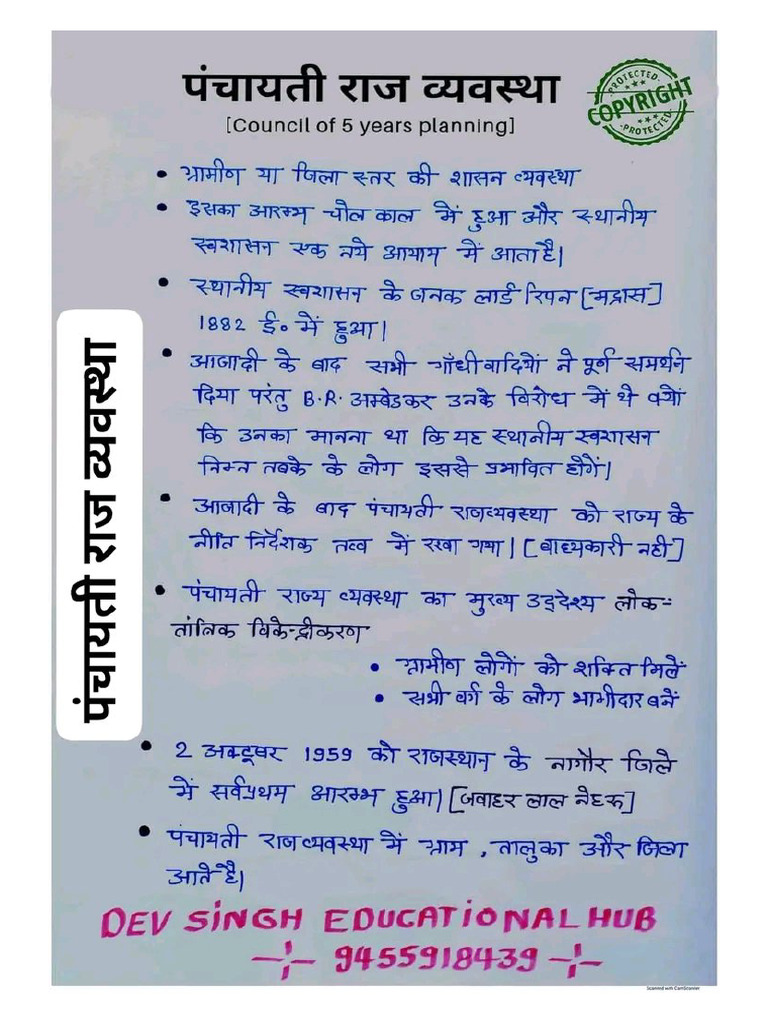 पंचायती राज व्यवस्था
[Council of 5 years planning]
PROTECTED
COPYRIGHT
PROTECTED
• ग्रामीण या जिला स्तर की शासन व्यवस्था
• इसका आरम्भ चोल काल में हुआ और स्थानीय
स्वशासन एक नये आयाम में आता है।
• स्थानीय स्वशासन के जनक लार्ड रिपन [मद्रास]
1882 ई० में हुआ।
• आजादी के बाद सभी गाँधीवादियों ने पूर्ण समर्थन
दिया परंतु B.R. अम्बेडकर उनके विरोध में थे क्यों
कि उनका मानना था कि यह स्थानीय स्वशासन
निम्न तबके के लोग इससे प्रभावित होगें।
• आजादी के बाद पंचायती राजव्यवस्था को राज्य के
नीति निर्देशक तत्व में रखा गया। [बाध्यकारी नही]
• पंचायती राज्य व्यवस्था का मुख्य उद्देश्य लोक-
तांत्रिक विकेन्द्रीकरण
• ग्रामीण लोगों को शक्ति मिलें
• सभी वर्ग के लोग भागीदार बनें
• 2 अक्टूबर 1959 को राजस्थान के नागौर जिले
में सर्वप्रथम आरम्भ हुआ। [जवाहर लाल नेहरू]
• पंचायती राजव्यवस्था में ग्राम, तालुका और जिला
आते है।
पंचायती राज व्यवस्था
DEV SINGH EDUCATIONAL HUB
9455918439
Scanned with CamScanner